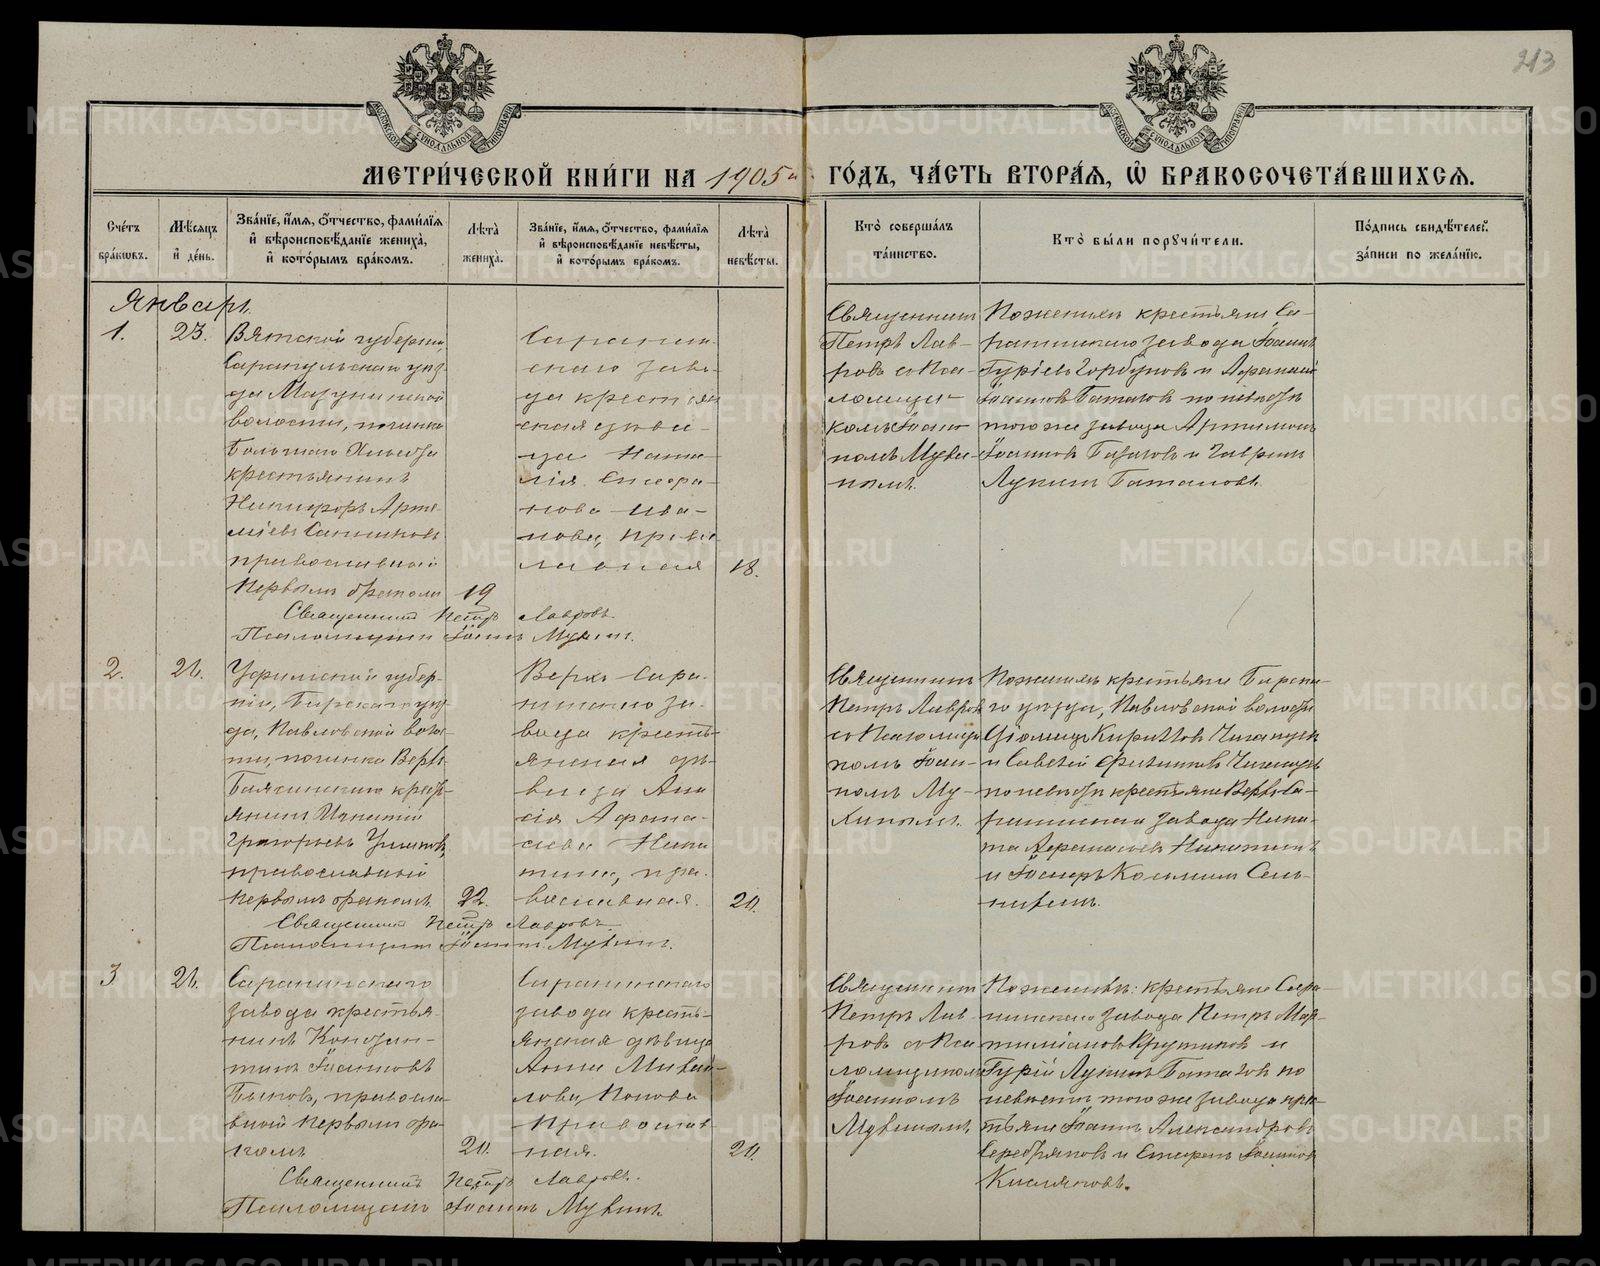 213
МЕТРИ́ЧЕСКОЙ КНИ́ГИ НА 1905й ГО́ДЪ, ЧА́СТЬ ВТОРА́Я, Ѡ БРАКОСОЧЕТА́ВШИХСЯ.
Сче́тъ бра́кѡвъ.
Мѣ́сяцъ и҆ де́нь.
Зва́нїе, и҆́мя, ѻ҆́тчество, фами́лїя и҆ вѣроисповѣ́данїе жениха̀, и҆ кото́рымъ бра́комъ.
Лѣ́та жениха̀.
Зва́нїе, и҆́мя, ѻ҆́тчество, фами́лїя и҆ вѣроисповѣ́данїе невѣ́сты, и҆ кото́рымъ бра́комъ.
Лѣ́та невѣ́сты.
Кто̀ соверша́лъ та́инство.
Кто̀ бы́ли порꙋчи́тели.
По́дпись свидѣ́телей за́писи по жела́нїю.
Январь.
1.
23.
Вятской губерніи,
Сарапульскаго уѣз-
да
волости, починка
крестьянинъ
Никифоръ Арте-
міевъ Санниковъ
православный
первымъ бракомъ
19
Саранин-
скаго заво-
да крестьян-
ская дѣви-
ца Ната-
лія
нова Ива-
нова, право-
славная
18.
Священникъ
Петръ Лав-
ровъ съ Пса-
ломщи-
комъ Іоан-
номъ Муки-
нымъ.
По женихѣ крестьяне Са-
ранинскаго завода Іоаннъ
Гуріевъ Горбуновъ и Афанасій
Іоанновъ Баталовъ по невѣстѣ
того же завода Артемонъ
Іоанновъ и Гавріилъ
Лукинъ Баталовъ.
Священникъ Петръ Лавровъ.
Псаломщикъ Іоаннъ Мукинъ.
2.
21.
Уфимской губер-
ніи, Бирскаго уѣз-
да, Павловской воло-
сти, починка Верхъ-
крестъ-
янинъ Игнатій
Григорьевъ
православный
первымъ бракомъ
22.
Верхъ-Сара-
нинскаго за-
вода кресть-
янская дѣ-
вица Ана-
сія Афана-
сіева Ники-
тина, пра-
вославная.
20.
Священникъ
Петръ Лавровъ
съ Псаломщи-
комъ Іоан-
номъ Му-
кинымъ.
По женихѣ крестьяне Бирска-
го уѣзда, Павловской волости
Кириловъ
и Савелій
по невѣстѣ крестьяне Верхъ-Са-
ранинскаго завода Ники-
та Афанасьевъ Никитинъ
и Косминъ
Священникъ Петръ Лавровъ.
Псаломщикъ Іоаннъ Мукинъ.
3
21.
Саранинскаго
завода крестья-
нинъ Констан-
тинъ Іоанновъ
Быковъ, правосла-
вный первымъ бра-
комъ
20.
Саранинскаго
завода кресть-
янская дѣвица
Анна Михаи-
лова Попова
Православ-
ная.
20.
Священникъ
Петръ Лав-
ровъ съ Пса-
ломщикомъ
Іоанномъ
Мукинымъ.
По женихѣ: крестьяне Сара-
нинскаго завода Петръ Мар-
тиміановъ Крутиковъ и
Гурій Лукинъ Баталовъ по
невѣстѣ того же завода кре-
стьяне Іоаннъ Александровъ
Серебряковъ и Стефанъ Іоанновъ
Кисляковъ.
Священникъ Петръ Лавровъ.
Псаломщикъ Іоаннъ Мукинъ.
METRIKI.GASO-URAL.RU